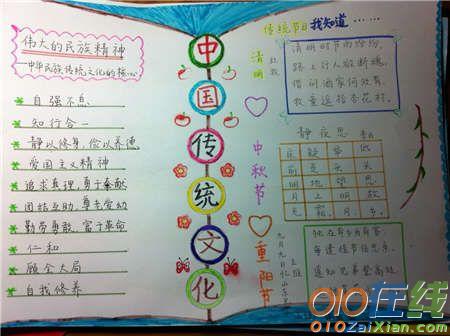 伟大的民族精神
—中华民族传统文化的核心
自强不息
知行合一
静以修身，俭以养德
爱国主义精神
追求真理，勇于奉献
团结互助，尊老爱幼
勤劳勇敢，富于革命
仁和
顾全大局
自我修养
中
国
传
统
文
化
传统节日我知道……
清明
杜牧
清明时节雨纷纷，
路上行人欲断魂。
借问酒家何处有，
牧童遥指杏花村。
中秋节
静夜思
床疑举低
前是头头
明地望思
月上明故
光霜月乡
重阳节
九月九日忆山东兄弟
王维
每逢佳节倍思亲。
遥知兄弟登高处
010在线
010ZaiXian.com